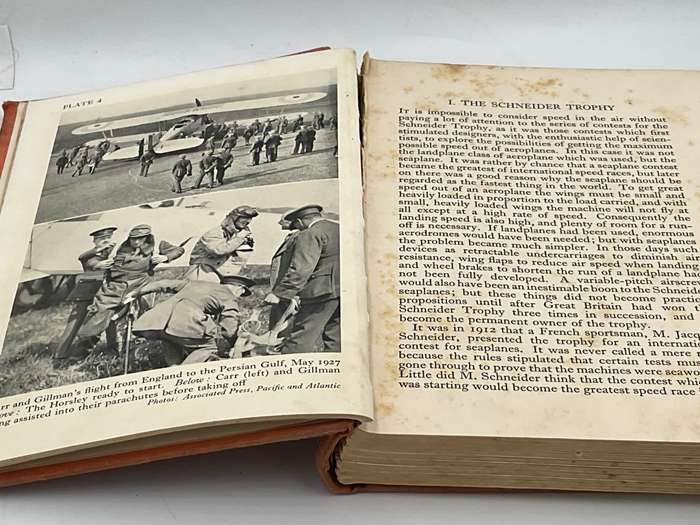 PLATE 4
rr and Gillman's flight from England to the Persian Gulf, May 1927
ove: The Horsley ready to start. Below: Carr (left) and Gillman
ng assisted into their parachutes before taking off
Photos: Associated Press, Pacific and Atlantic
I. THE SCHNEIDER TROPHY
IT is impossible to consider speed in the air without
paying a lot of attention to the series of contests for the
Schneider Trophy, as it was those contests which first
stimulated designers, with the enthusiastic help of scien-
tists, to explore the possibilities of getting the maximum
possible speed out of aeroplanes. In this case it was not
the landplane class of aeroplane which was used, but the
seaplane. It was rather by chance that a seaplane contest
became the greatest of international speed races, but later
on there was a good reason why the seaplane should be
regarded as the fastest thing in the world. To get great
speed out of an aeroplane the wings must be small and
heavily loaded in proportion to the load carried, and with
small, heavily loaded wings the machine will not fly at
all except at a high rate of speed. Consequently the
landing speed is also high, and plenty of room for a run
off is necessary. If landplanes had been used, enormous
aerodromes would have been needed; but with seaplanes
the problem became much simpler. In those days such
devices as retractable undercarriages to diminish air
resistance, wing flaps to reduce air speed when landing
and wheel brakes to shorten the run of a landplane had
not been fully developed. A variable-pitch airscrew
would also have been an inestimable boon to the Schneider
seaplanes; but these things did not become practical
propositions until after Great Britain had won the
Schneider Trophy three times in succession, and
become the permanent owner of the trophy.
It was in 1912 that a French sportsman, M. Jacq
Schneider, presented the trophy for an interna
contest for seaplanes. It was never called a mere r
because the rules stipulated that certain tests must
gone through to prove that the machines were seawor
Little did M. Schneider think that the contest whi
was starting would become the greatest speed race